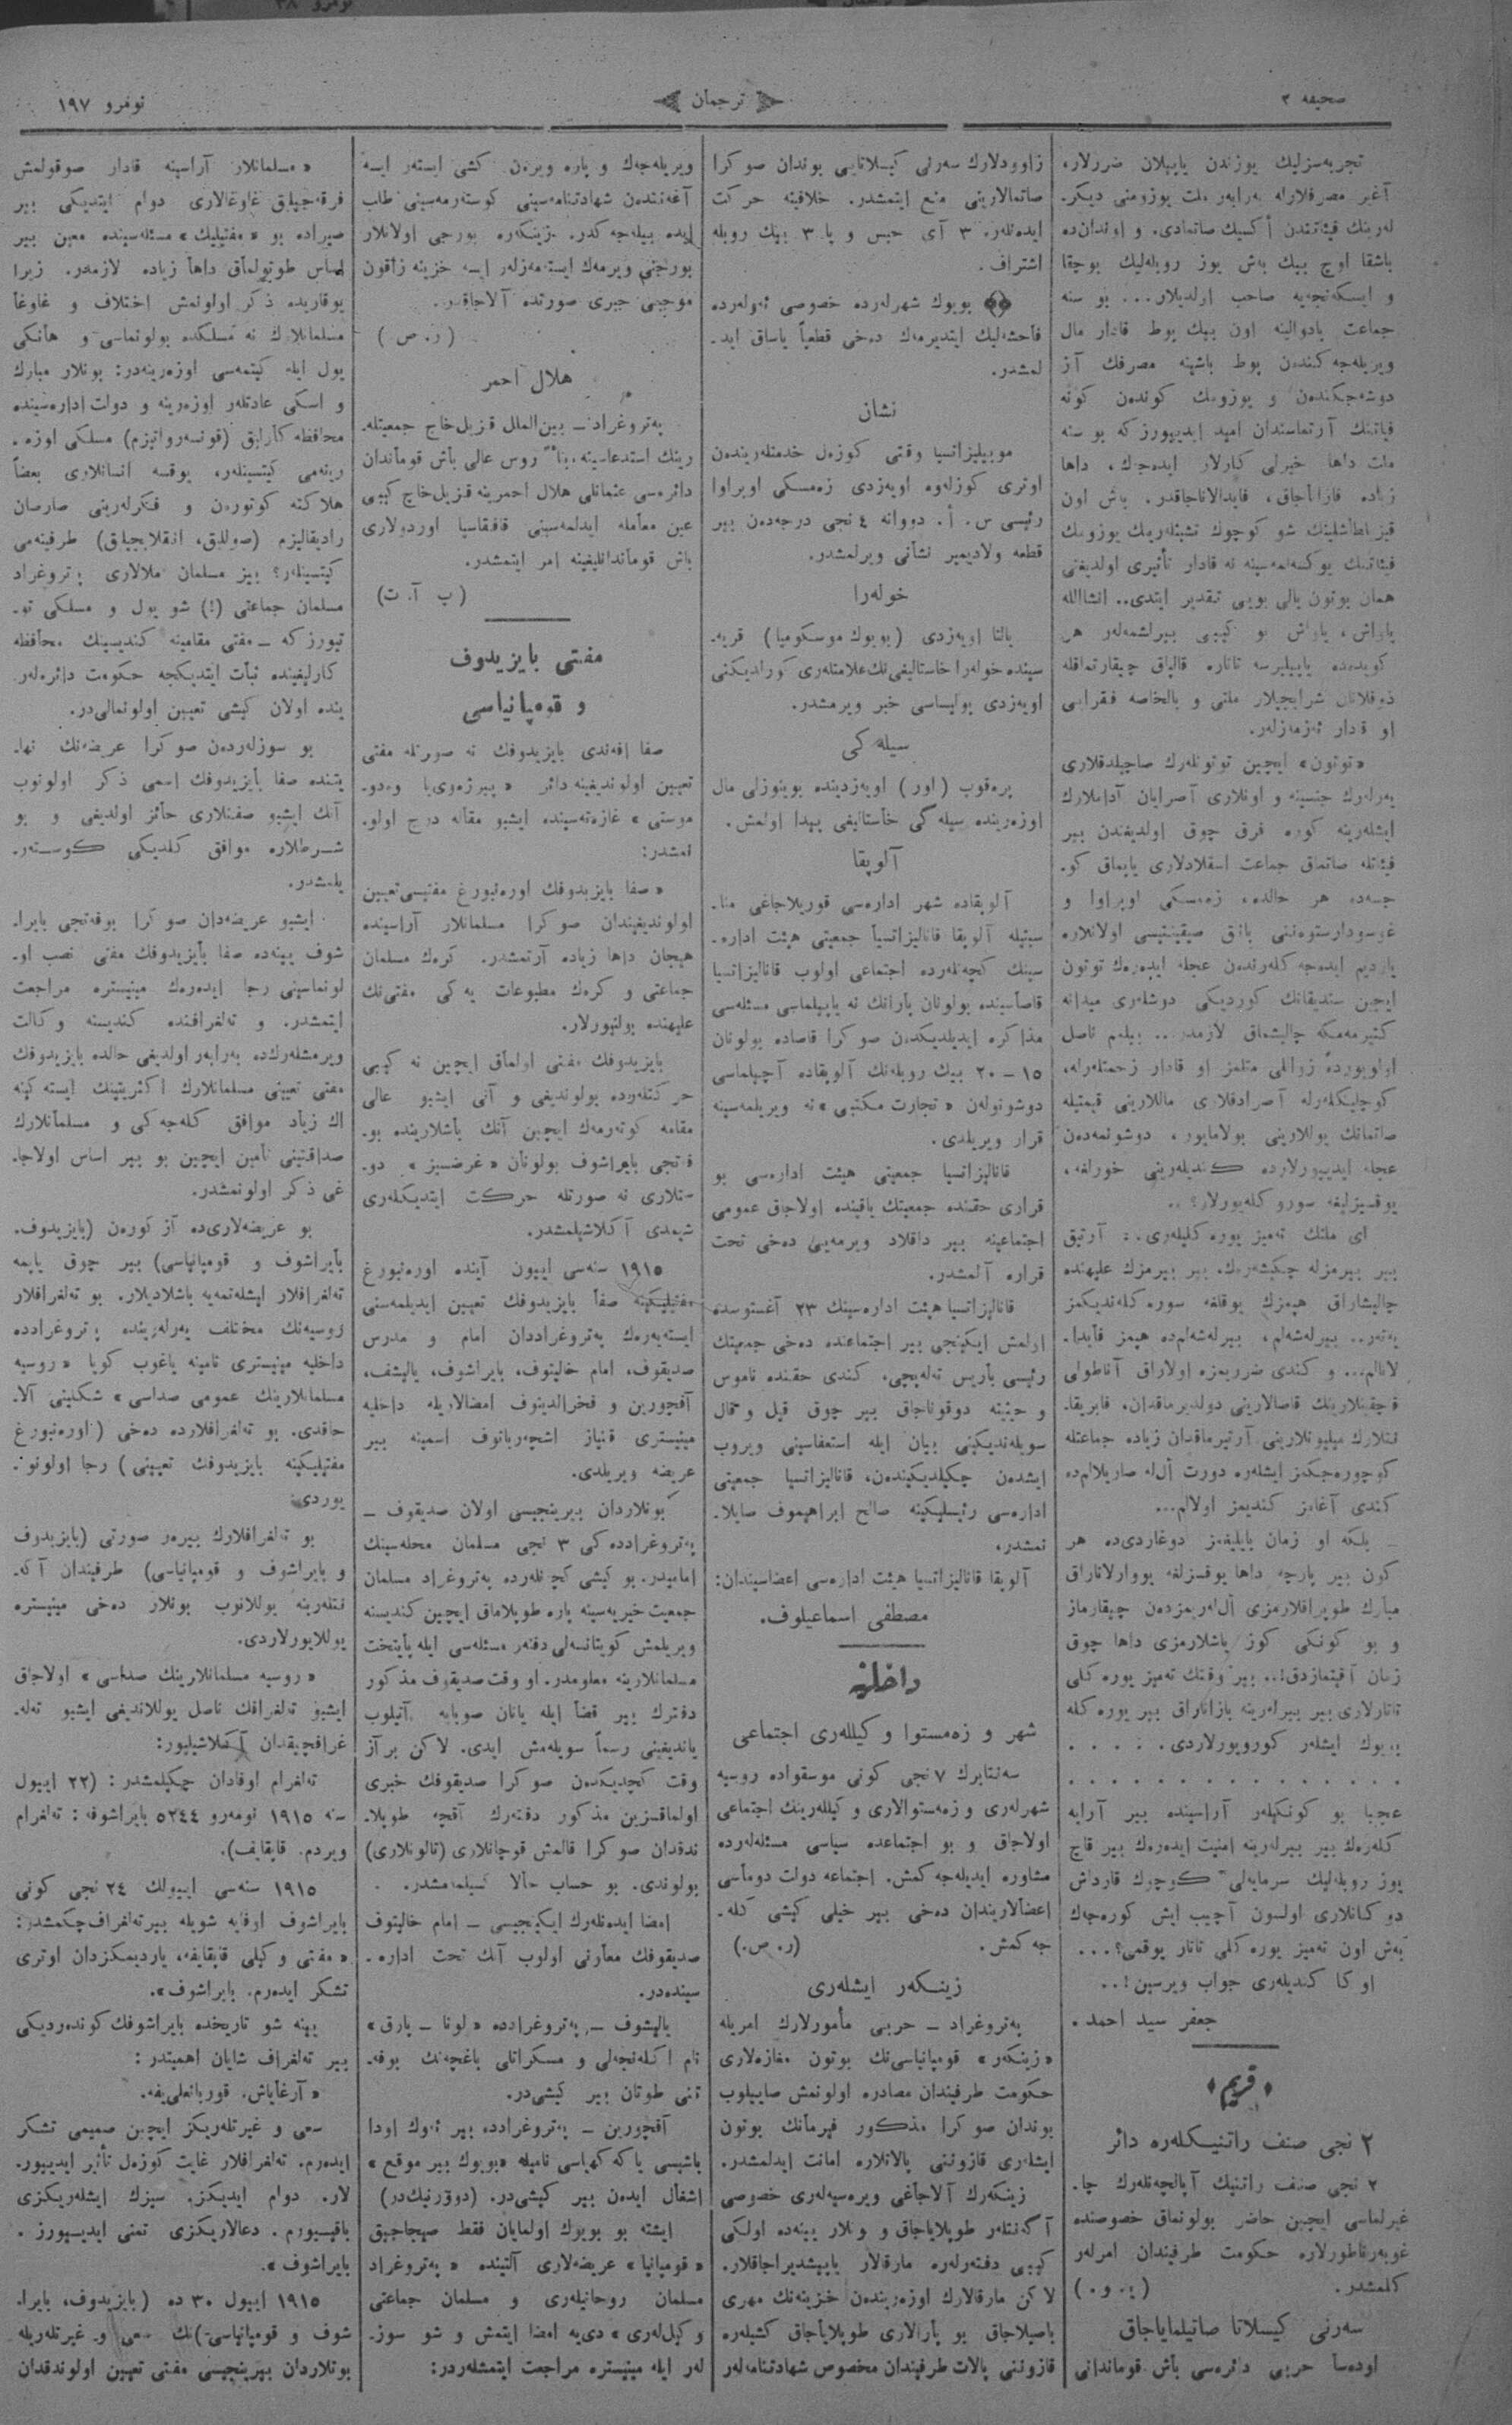 صحیفه ۲
ترجمان
نومرو ۱۹۷
تجربه‌سزلیك یوزندن یاپیلان ضررلار،
آغیر مصرفلارله برابر ملت یوزومنی دیكر.
لرینك فیئاتندن أكسیك صاتمادی. و اوندان‌ده
باشقا اوچ بیك بش یوز روبله‌لیك بوچقا
و ایسكه‌نجه‌یه صاحب اولدیلار... بو سنه
جماعت یادوالینه اون بیك پوط قادار مال
ویریله‌جه‌كندن پوط باشینه مصرفك آز
دوشه‌جكندن و یوزومك كوندن كونه
فیاتنك آرتماسندان امید ایدییورز كه بو سنه
ملت داها خیرلی كارلار ایده‌جك، داها
زیاده قازاناجاق، فایدالاناجاقدر. بش اون
همان بوتون یالی بویی تقدیر ایتدی.. انشاالله
یاواش، یاواش بو كیبی بیرلشمه‌لر هر
او قادار ئه‌زمه‌زلر.
«توتون» ایچین توتونلرك صاچیلدقلاری
یرلرك جنسینه و اونلاری آصرایان آداملارك
ایشلرینه كوره فرق چوق اولدیغندن بیر
فیئاتله صاتماق جماعت اسقلادلاری یاپماق كو.
جسه‌ده هر حالده، زه‌مسكی اوپراوا و
یاردیم ایده‌جه‌كلرندن عجله ایدیرك توتون
ایچین سندیقانك كوردیكی دوشلری میدانه
كتیرمه‌مكه چالیشماق لازمدر.. بیلمم ناصل
اولویورده زواللی ملتمز او قادار زحمتلرله،
كوچلیكلرله آصرادقلاری ماللارینی قیمتیله
صاتمانك یوللارینی بولامایور، دوشونمه‌دن
عجله ایدییورلارده كندیلرینی خورلغه،
یوقسیزلیغه سورو كله‌یورلار؟ ..
ای ملتك تمیز یوره‌كلیلری.. آرتیق
بیر بیرمزله چكیشه‌رك. بیر بیرمزك علیهنده
چالیشاراق هپمزك یوقلغه سوره‌كلندیكمز
یتر.. بیرلشه‌لم، بیرلشه‌لم‌ده هپمز فایدا.
لانالم... و كندی ضرریمزه اولاراق آناطولی
كوچوره‌جكمز ایشلره دورت أل‌له صاریلالم‌ده
كندی آغامز كندیمز اولالم...
ـ بلكه او زمان بایلیغمز دوغاردی‌ده هر
كون بیر پارچه داها یوقسزلغه یووارلاناراق
مبارك طوپراقلارمزی ألله‌ریمزدن چیقارماز
و بو كونكی كوز یاشلارمزی داها چوق
زمان آقیتمازدق!.. بیر وقتك تمیز یوره‌كلی
تاتارلاری بیر بیرلرینه یازاناراق بیر یوره‌كله
بویوك ایشلر كورویورلاردی. . . . .
عجبا بو كونكیلر آراسینده بیر آرایه
كله‌رك بیر بیرلرینه امنیت ایده‌رك بیر قاچ
یوز روبله‌لیك سرمایه‌لی كوچوك قارداش
دوكانلاری اولسون آچیب ایش كوره‌جك
بش اون تمیز یوره‌كلی تاتار یوقمی؟...
او كا كندیلری جواب ویرسین!..
جعفر سید احمد.
«قریم»
۲ نجی صنف راتنیكلره دائر
۲ نجی صنف راتنیك آپالچه‌نلرك چا.
غیرلماسی ایچین حاضر بولونماق خصوصنده
غوبرناطورلاره حكومت طرفیندان امرلر
كلمشدر.
سرنی كیسلاتا صاتیلمایاجاق
اوده‌سا حربی دائره‌سی باش قوماندانی
زاوودلارك سرنی كیسلاتایی بوندان صوكرا
صاتمالارینی منع ایتمشدر. خلافینه حركت
ایدنلره ۳ آی حبس و یا ۳ بیك روبله
اشتراف.
بویوك شهرلرده خصوصی ئولرده
فاحشه‌لیك ایتدیرمك دخی قطعیاً یاساق اید.
لمشدر.
نشان
موبیلیزاتسیا وقتی كوزل خدمتلریندن
اوتری كوزله‌وه اویزدی زه‌مسكی اوپراوا
رئیسی س. أ. دووانه ٤ نجی درجه‌دن بیر
قطعه ولادیمیر نشانی ویرلمشدر.
خولرا
یالتا اویزدی (بویوك موسكومیا) قریه.
سینده خولرا خاستالیغی‌نك علامتلری كورلدیكنی
اویزدی پولیساسی خبر ویرمشدر.
سیله‌كی
پره‌قوپ (اور) اویزدینده بوینوزلی مال
اوزرینده سیله‌كی خأستالیغی پیدا اولمش.
آلوپقا
آلوپقاده شهر اداره‌سی قوریلاجاغی منا.
سبتیله آلوپقا قانالیزاتسیأ جمعیتی هیئت اداره.
سینك كچنلرده اجتماعی اولوب قانالیزاتسیا
قاصأسینده بولونان پارانك نه یاپیلماسی مسئله‌سی
مذاكره ایدیلدیكدن صوكرا قاصاده بولونان
۱۵ ـ ۲۰ بیك روبله‌نك آلوپقاده آچیلماسی
دوشونولن «تجارت مكتبی»نه ویریلمه‌سینه
قرار ویریلدی.
قانالیزاتسیا جمعیتی هیئت اداره‌سی بو
قراری حقنده جمعیتك یاقینده اولاجاق عمومی
اجتماعینه بیر داقلاد ویرمه‌یی دخی تحت
قراره آلمشدر.
قانالیزاتسیا هیئت اداره‌سینك ۲۳ آغستوسده
اولمش ایكینجی بیر اجتماعنده دخی جمعیتك
رئیسی بأریس ته‌له‌پچی، كندی حقنده ناموس
و حیثیته دوقوناجاق بیر چوق قیل و قال
سویلندیكینی بیان ایله استعفاسینی ویروب
ایشدن چكیلدیكیندن، قانالیزاتسیا جمعیتی
اداره‌سی رئیسلیكینه صالح ابراهیموف صایلا.
نمشدر.
آلوپقا قانالیزاتسیا هیئت اداره‌سی اعضاسیندان:
مصطفی اسماعیلوف.
داخلیه
شهر و زه‌مستوا وكیللری اجتماعی
سنتابرك ۷ نجی كونی موسقواده روسیه
شهرلری و زه‌مستوالاری وكیللرینك اجتماعی
اولاجاق و بو اجتماعده سیاسی مسئله‌لرده
مشاوره ایدیله‌جه‌كمش. اجتماعه دولت دوماسی
اعضألاریندان دخی بیر خیلی كیشی كله.
جه‌كمش. (ر. ص.)
زینكر ایشلری
پتروغراد ـ حربی مأمورلارك امریله
«زینكر» قومپانیاسی‌نك بوتون مغازه‌لاری
حكومت طرفیندان مصادره اولونمش صاییلوب
بوندان صوكرا مذكور فیرمانك بوتون
ایشلری قازوننی پالاتلاره امانت ایدلمشدر.
زینكرك آلاجاغی ویره‌سیه‌لری خصوصی
آگنتلر طوپلایاجاق و ونلار یینه‌ده اولكی
كیبی دفترلره مارقالار یاپیشدیراجاقلار.
لاكن مارقالارك اوزریندن خزینه‌نك مهری
باصیلاجاق بو پأرالاری طوپلایأجاق كشیلره
قازوننی پالات طرفیندان مخصوص شهادتنامه‌لر
ویریله‌جك و پاره ویرن كشی ایستر ایسه
آغنتدن شهادتنامه‌سینی كوسترمه‌سینی طلب
ایده بیله‌جه‌كدر. زینكره بورجی اولانلار
بورجنی ویرمك ایسته‌مه‌زلر ایسه خزینه زأقون
موجبی جبری صورتده آلاجاقدر.
(ر. ص)
هلال احمر
پتروغراد ـ بین‌الملل قزیل‌خاچ جمعیتله.
رینك استدعاسینه بناءً روس عالی بأش قومأندان
دائره‌سی عثمانلی هلال احمرینه قزیل‌خاچ كیبی
عین معأمله ایدلمه‌سینی قافقاسیا اوردولاری
باش قومأندانلیغینه امر ایتمشدر.
(پ آ. ت)
مفتی بایزیدوف
و قومپانیاسی
صفا افندی بایزیدوفك نه صورتله مفتی
تعیین اولوندیغینه دائر «بیرژه‌وی‌یا وه‌دو.
موستی» غازه‌ته‌سینده ایشبو مقاله درج اولو.
نمشدر:
«صفا بایزیدوفك اورنبورغ مفتیسی تعیین
اولوندیغیندان صوكرا مسلمانلار آراسینده
هیجان داها زیاده آرتمشدر. كرك مسلمان
جماعتی و كرك مطبوعات یه‌كی مفتی‌نك
علیهنده بولنیورلار.
بایزیدوفك مفتی اولمأق ایچین نه كیبی
حركتلرده بولوندیغی و آنی ایشبو عالی
مقامه كوترمك ایچین آنك بأشلارینده بو.
فتچی بایراشوف بولونان «غرضسیز» دو.
ستلاری نه صورتله حركت ایتدیكلری
شیمدی آكلاشیلمشدر.
۱۹۱۵ سنه‌سی اییون آینده اورنبورغ
مفتیلیكینه صفأ بایزیدوفك تعیین ایدیلمه‌سنی
ایسته‌یه‌رك پتروغراددان امام و مدرس
صدیقوف، امام خالیتوف، بایراشوف، یالیشف،
آقچورین و فخرالدینوف امضالاریله داخلیه
مینیستری قنیاز اشچه‌رباتوف اسمینه بیر
عریضه ویریلدی.
بونلاردان بیرینچیسی اولان صدیقوف ـ
پتروغرادده‌كی ۳ نجی مسلمان محله‌سینك
امامیدر. بو كیشی كچنلرده پتروغراد مسلمان
جمعیت خیریه‌سینه پاره طوپلاماق ایچین كندیسنه
ویریلمش كویتانسه‌لی دفتر مسئله‌سی ایله پأیتخت
مسلمانلارینه معلومدر. او وقت صدیقوف مذكور
دفترك بیر قضأ ایله یانان صوبایه آتیلوب
یاندیغینی رسماً سویله‌مش ایدی. لاكن بر آز
وقت كچدیكدن صوكرا صدیقوفك خبری
اولماقسزین مذكور دفترك آقچه طوپلا.
ندقدان صوكرا قالمش قوچانلاری (تالونلاری)
بولوندی. بو حساب حالا كسیلمه‌مشدر.
امضا ایدنلرك ایكینجیسی ـ امام خالیتوف
صدیقوفك معأونی اولوب آنك تحت اداره.
سینده‌در.
یالیشوف ـ پتروغرادده «لونا ـ پارق»
نام اكلنجه‌لی و مسكراتلی باغچه‌نك بوفه.
تنی طوتان بیر كیشی‌در.
آقچورین ـ پتروغرادده بیر ئوك اودا
اشغال ایدن بیر كیشی‌در. (دوورنیك‌در)
ایشته بو بویوك اولمایان فقط صیجاجیق
«قومپانیا» عریضه‌لاری آلتینده «پتروغراد
مسلمان روحانیلری و مسلمان جماعتی
وكیللری» دی‌یه امضا ایتمش و شو سوز.
لر ایله مینیستره مراجعت ایتمشلردر:
«مسلمانلار آراسینه قادار صوقولمش
فرقه‌جیلق غاوغالاری دوام ایتدیكی بیر
صیراده بو «مفتیلیك» مسئله‌سینده معین بیر
اساس طوتولمأق داهأ زیاده لازمدر. زیرا
یوقاریده ذكر اولونمش اختلاف و غاوغأ
مسلمانلارك نه مسلكده بولونماسی و هانكی
یول ایله كیتمه‌سی اوزرینه‌در: بونلار مبارك
و اسكی عادتلر اوزرینه و دولت اداره‌سینده
محافظه‌كأرلیق (قونسرواتیزم) مسلكی اوزه.
رینه‌می كیتسینلر، یوقسه انسانلاری بعضأ
هلاكته كوتورن و فكرلرینی صارصان
رادیقالیزم (صوللق، انقلابجیلق) طرفینه‌می
كیتسینلر؟ بیز مسلمان ملالاری پتروغراد
مسلمان جماعتی (!) شو یول و مسلكی تو.
تیورز كه ـ مفتی مقامینه كندیسینك محافظه
كارلیغینده ثبات ایتدیكجه حكومت دائره‌لر.
ینده اولان كیشی تعیین اولونمالی‌در.
بو سوزلردن صوكرا عریضه‌نك نها.
یتنده صفا بأیزیدوفك اسمی ذكر اولونوب
آنك ایشبو صفتلاری حأئز اولدیغی و بو
شرطلاره موافق كلدیكی كوستر.
یلمشدر.
ایشبو عریضه‌دان صوكرا بوفتچی بایرا.
شوف یینه‌ده صفا بأیزیدوفك مفتی نصب او.
لونماسینی رجا ایده‌رك مینیستره مراجعت
ایتمشدر. و تلغرافنده كندیسنه وكالت
ویرمشلرك‌ده برابر اولدیغی حالده بایزیدوفك
مفتی تعیینی مسلمانلارك اكثریتینك ایسته‌كینه
اك زیاد موافق كله‌جه‌كی و مسلمأنلارك
صداقتینی تأمین ایچین بو بیر اساس اولاجا.
غی ذكر اولونمشدر.
بو عریضه‌لاری‌ده آز كورن (بایزیدوف.
بأیراشوف و قومپانیاسی) بیر چوق یاپمه
تلغرافلار ایشلتمه‌یه باشلادیلار. بو تلغرافلار
روسیه‌نك مختلف یرلرینده پتروغرادده
داخلیه مینیستری نامینه یاغوب كویا «روسیه
مسلمانلارینك عمومی صداسی» شكلینی آلا.
جاقدی. بو تلغرافلارده دخی (اورنبورغ
مفتیلیكینه بایزیدوفك تعیینی) رجا اولونو.
یوردی.
بو تلغرافلارك بیرر صورتی (بایزیدوف
و بایراشوف و قومپانیاسی) طرفیندان آگه.
نتلرینه یوللانوب بونلار دخی مینیستره
یوللایورلاردی.
«روسیه مسلمانلارینك صداسی» اولاجاق
ایشبو تلغرافك ناصل یوللاندیغی ایشبو تله.
غرافچیقدان آكلاشیلیور:
تلغرام اوفادان چكیلمشدر: (۲۲ اییول
سنه ۱۹۱۵ نومرو ۵۲٤٤ بایراشوفه: تلغرام
ویردم. قاپقایف).
۱۹۱۵ سنه‌سی اییولك ۲٤ نجی كونی
بایراشوف اوفایه شویله بیر تلغراف چكمشدر:
«مفتی وكیلی قاپقایفه، یاردیمكزدان اوتری
تشكر ایدرم. بایراشوف».
یینه شو تاریخده بایراشوفك كوندردیكی
بیر تلغراف شایان اهمیتدر:
«آرغایاش. قوربانعلی‌یفه.
سعی و غیرتلریكز ایچین صمیمی تشكر
ایدرم. تلغرافلار غایت كوزل تأثیر ایدییور.
لار. دوام ایدیكز. سیزك ایشلریكزی
باقیییورم. دعالاریكزی تمنی ایدییورز.
بایراشوف».
۱۹۱۵ اییول ۳۰ ده (بایزیدوف، بایرا.
شوف و قومپانیاسی)نك سعی و غیرتلریله
بونلاردان بیرینچیسی مفتی تعیین اولوندقدان